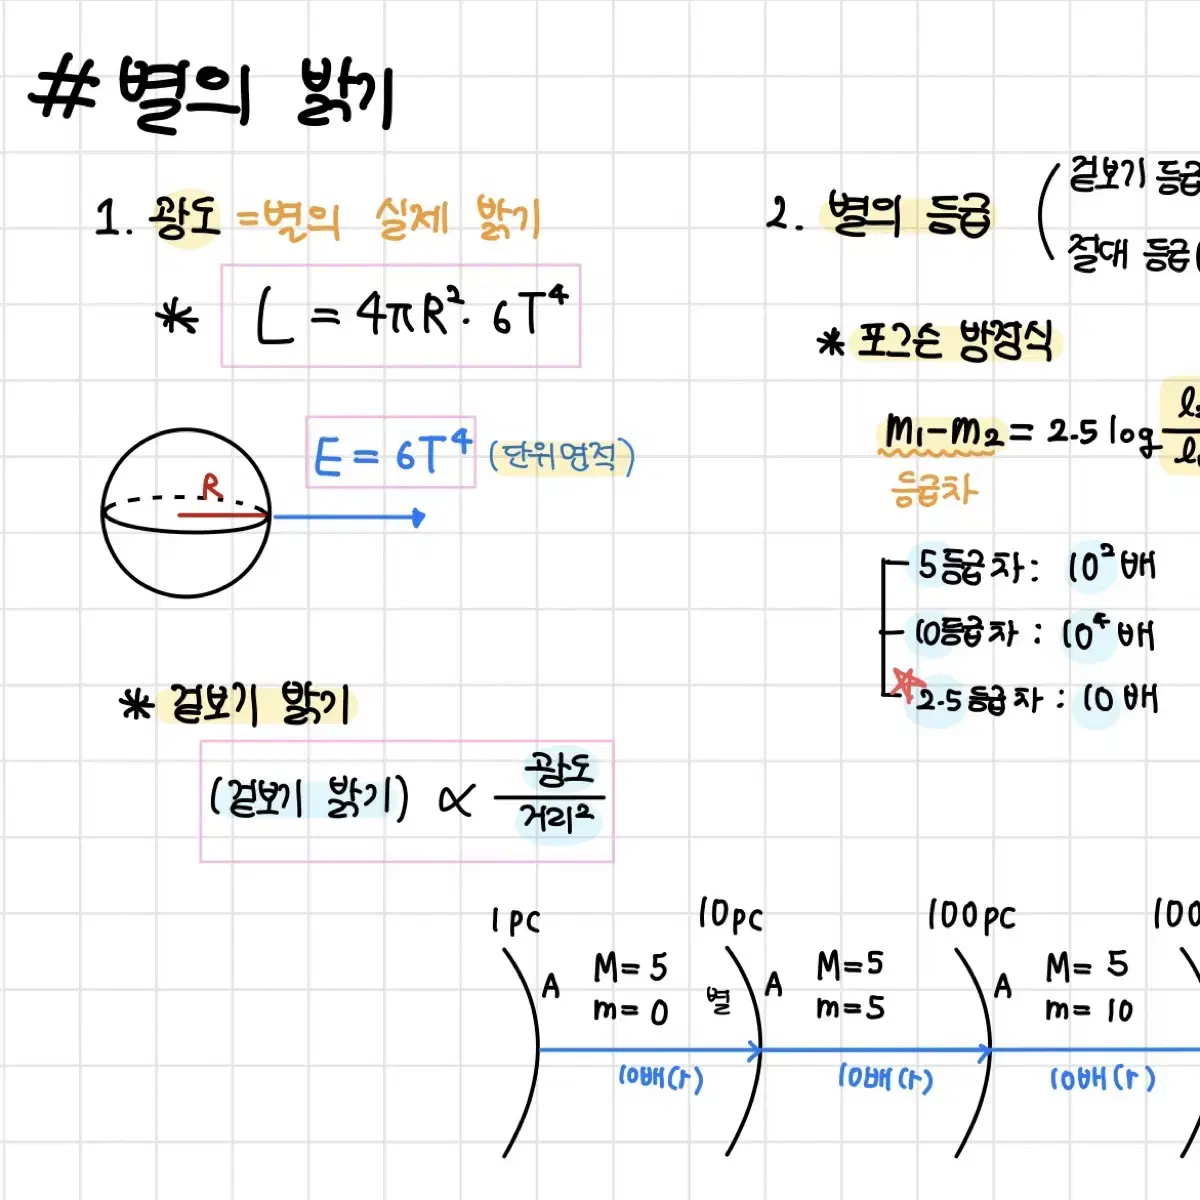 # 별의 밝기
1. 광도 =별의 실제 밝기
* L = 4πR²· 6T⁴
E = 6T⁴ (단위면적)
R
* 겉보기 밝기
(겉보기 밝기) ∝ 광도
거리²
2. 별의 등급 ( 겉보기 등급
절대 등급(
* 포그슨 방정식
m₁-m₂ = 2.5 log
등급차
5등급차 : 10² 배
10등급차 : 10⁴ 배
☆ 2.5등급차 : 10 배
1pc 10pc 100pc 100
A M=5 m=0 별
A M=5 m=5
A M=5 m=10
10배(r) 10배(r) 10배(r)